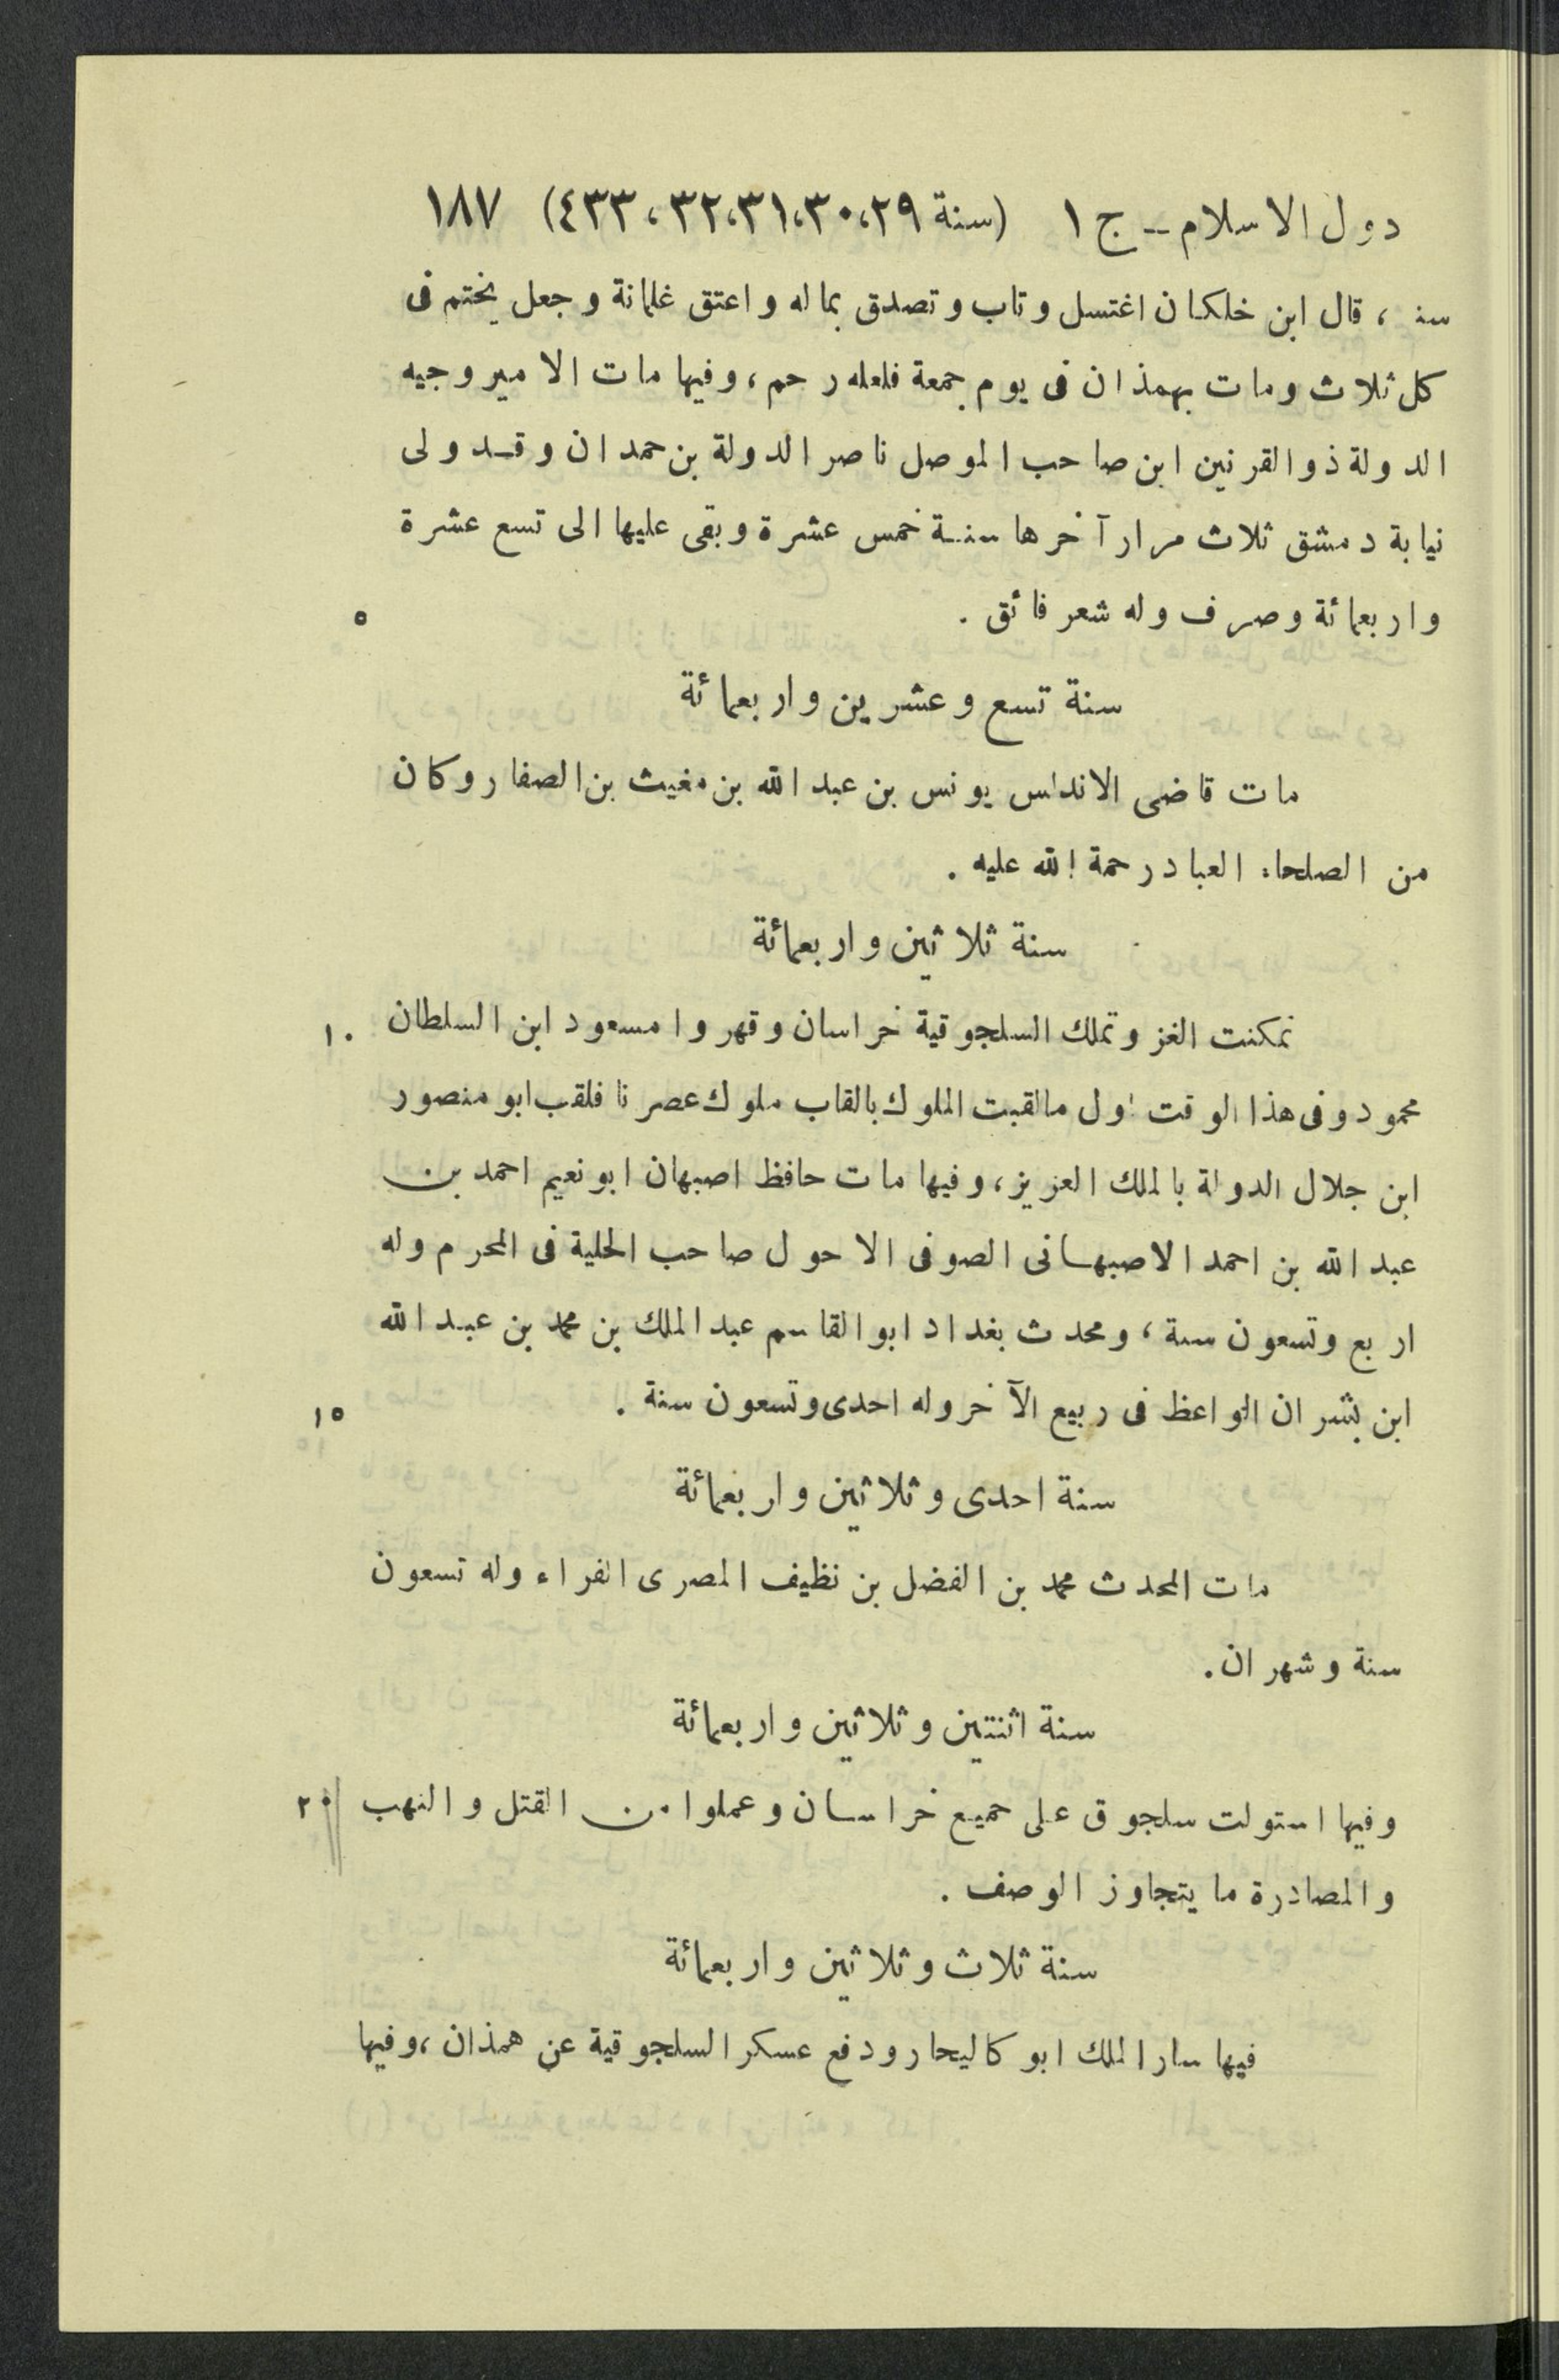 دول الاسلام – ج ١ (سنة ٢٩،٣٠،٣١،٣٢،٤٣٣) ١٨٧
سنة ، قال ابن خلكان اغتسل وتاب وتصدق بماله واعتق غلمانة وجعل يختم فى
كل ثلاث ومات بهمذان فى يوم جمعة فلعله رحم ، وفيها مات الامير وجيه
الدولة ذو القرنين ابن صاحب الموصل ناصر الدولة بن حمدان وقد ولى
نيابة دمشق ثلاث مرار آخرها سنة خمس عشرة وبقى عليها الى تسع عشرة
واربعمائة وصرف وله شعر فائق . ٥
سنة تسع وعشرين واربعمائة
مات قاضى الاندلس يونس بن عبد الله بن مغيث بن الصفار وكان
من الصلحاء العباد رحمة الله عليه .
سنة ثلاثين واربعمائة
تمكنت الغز وتملك السلجوقية خراسان وقهروا مسعود ابن السلطان ١٠
محمود وفى هذا الوقت اول مالقبت الملوك بالقاب ملوك عصرنا فلقب ابو منصور
ابن جلال الدولة بالملك العزيز ، وفيها مات حافظ اصبهان ابو نعيم احمد بن
عبد الله بن احمد الاصبهانى الصوفى الاحول صاحب الحلية فى المحرم وله
اربع وتسعون سنة ، ومحدث بغداد ابو القاسم عبد الملك بن محمد بن عبد الله
ابن بشران الواعظ فى ربيع الآخر وله احدى وتسعون سنة . ١٥
سنة احدى وثلاثين واربعمائة
مات المحدث محمد بن الفضل بن نظيف المصرى الفراء وله تسعون
سنة وشهران .
سنة اثنتين وثلاثين واربعمائة
وفيها استولت سلجوق على جميع خراسان وعملوا من القتل والنهب ٢٠
والمصادرة ما يتجاوز الوصف .
سنة ثلاث وثلاثين واربعمائة
فيها سار الملك ابو كاليجار ودفع عسكر السلجوقية عن همذان ، وفيها